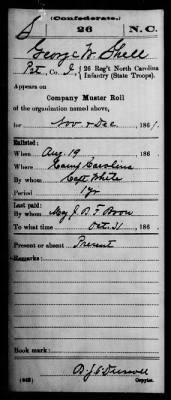 (Confederate.)
26 N.C.
George W Shell
Pvt, Co. I, 26 Reg't North Carolina
Infantry (State Troops).
Appears on
Company Muster Roll
of the organization named above,
for Nov & Dec, 1861.
Enlisted:
When Aug. 19, 186 .
Where Camp Carolina
By whom Capt White
Period 1 yr
Last paid:
By whom Maj J. B. F. Boon
To what time Oct. 31, 186 .
Present or absent Present
Remarks:
Book mark:
(642)
Copyist.